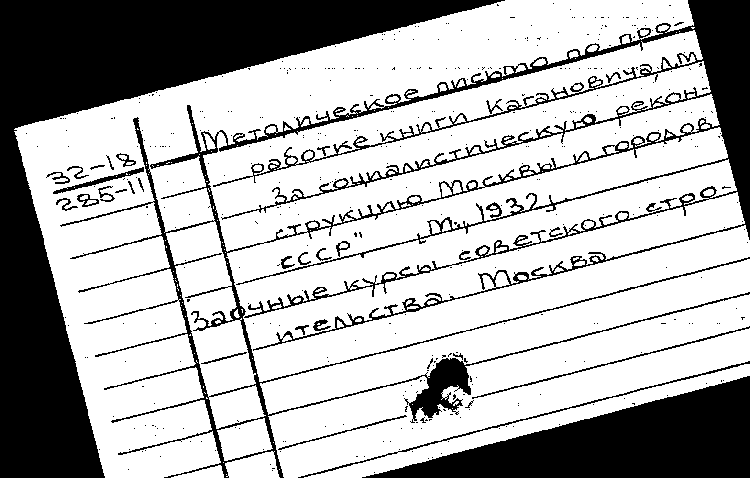 Методическое письмо по про-
32-18
работке книги Кагановича, Л.М.
285-11
„За социалистическую рекон-
струкцию Москвы и городов
СССР". [М., 1932].
Заочные курсы советского стро-
ительства. Москва